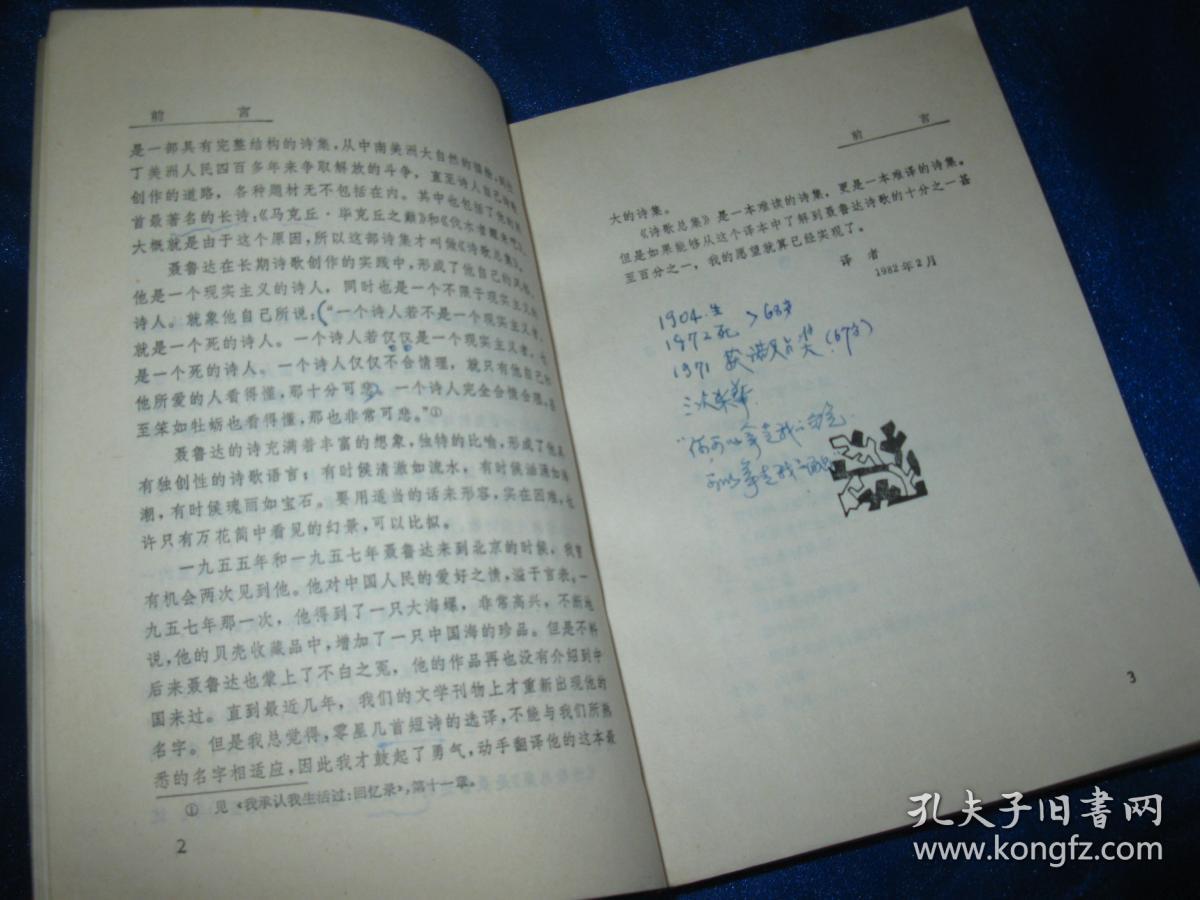 前 言
是一部具有完整结构的诗集，从中南美洲大自然的
丁美洲人民四百多年来争取解放的斗争，直至诗人自己
创作的道路，各种题材无不包括在内。其中也包括了他的
首最著名的长诗：《马克丘·毕克丘之巅》和《伐木者醒来吧》。
大概就是由于这个原因，所以这部诗集才叫做《诗歌总集》。
聂鲁达在长期诗歌创作的实践中，形成了他自己的风格。
他是一个现实主义的诗人，同时也是一个不限于现实主义的
诗人。就象他自己所说：“一个诗人若不是一个现实主义者，
就是一个死的诗人。一个诗人若仅仅是一个现实主义者，也
是一个死的诗人。一个诗人仅仅不合情理，就只有他自己和
他所爱的人看得懂，那十分可悲。一个诗人完全合情合理，甚
至笨如牡蛎也看得懂，那也非常可悲。”①
聂鲁达的诗充满着丰富的想象，独特的比喻，形成了他具
有独创性的诗歌语言；有时候清澈如流水，有时候汹涌如海
潮，有时候瑰丽如宝石。要用适当的话来形容，实在困难，也
许只有万花筒中看见的幻景，可以比拟。
一九五五年和一九五七年聂鲁达来到北京的时候，我曾
有机会两次见到他。他对中国人民的爱好之情，溢于言表。一
九五七年那一次，他得到了一只大海螺，非常高兴，不断地
说，他的贝壳收藏品中，增加了一只中国海的珍品。但是不料
后来聂鲁达也蒙上了不白之冤，他的作品再也没有介绍到中
国来过。直到最近几年，我们的文学刊物上才重新出现他的
名字。但是我总觉得，零星几首短诗的选译，不能与我们所熟
悉的名字相适应，因此我才鼓起了勇气，动手翻译他的这本最
① 见《我承认我生活过：回忆录》，第十一章。
2
前 言
大的诗集。
《诗歌总集》是一本难读的诗集，更是一本难译的诗集。
但是如果能够从这个译本中了解到聂鲁达诗歌的十分之一甚
至百分之一，我的愿望就算已经实现了。
译 者
1982年2月
1904.生
1972死 >68岁
1971 获诺贝尔奖（67岁）
三次来华
3
孔夫子旧书网
www.kongfz.com